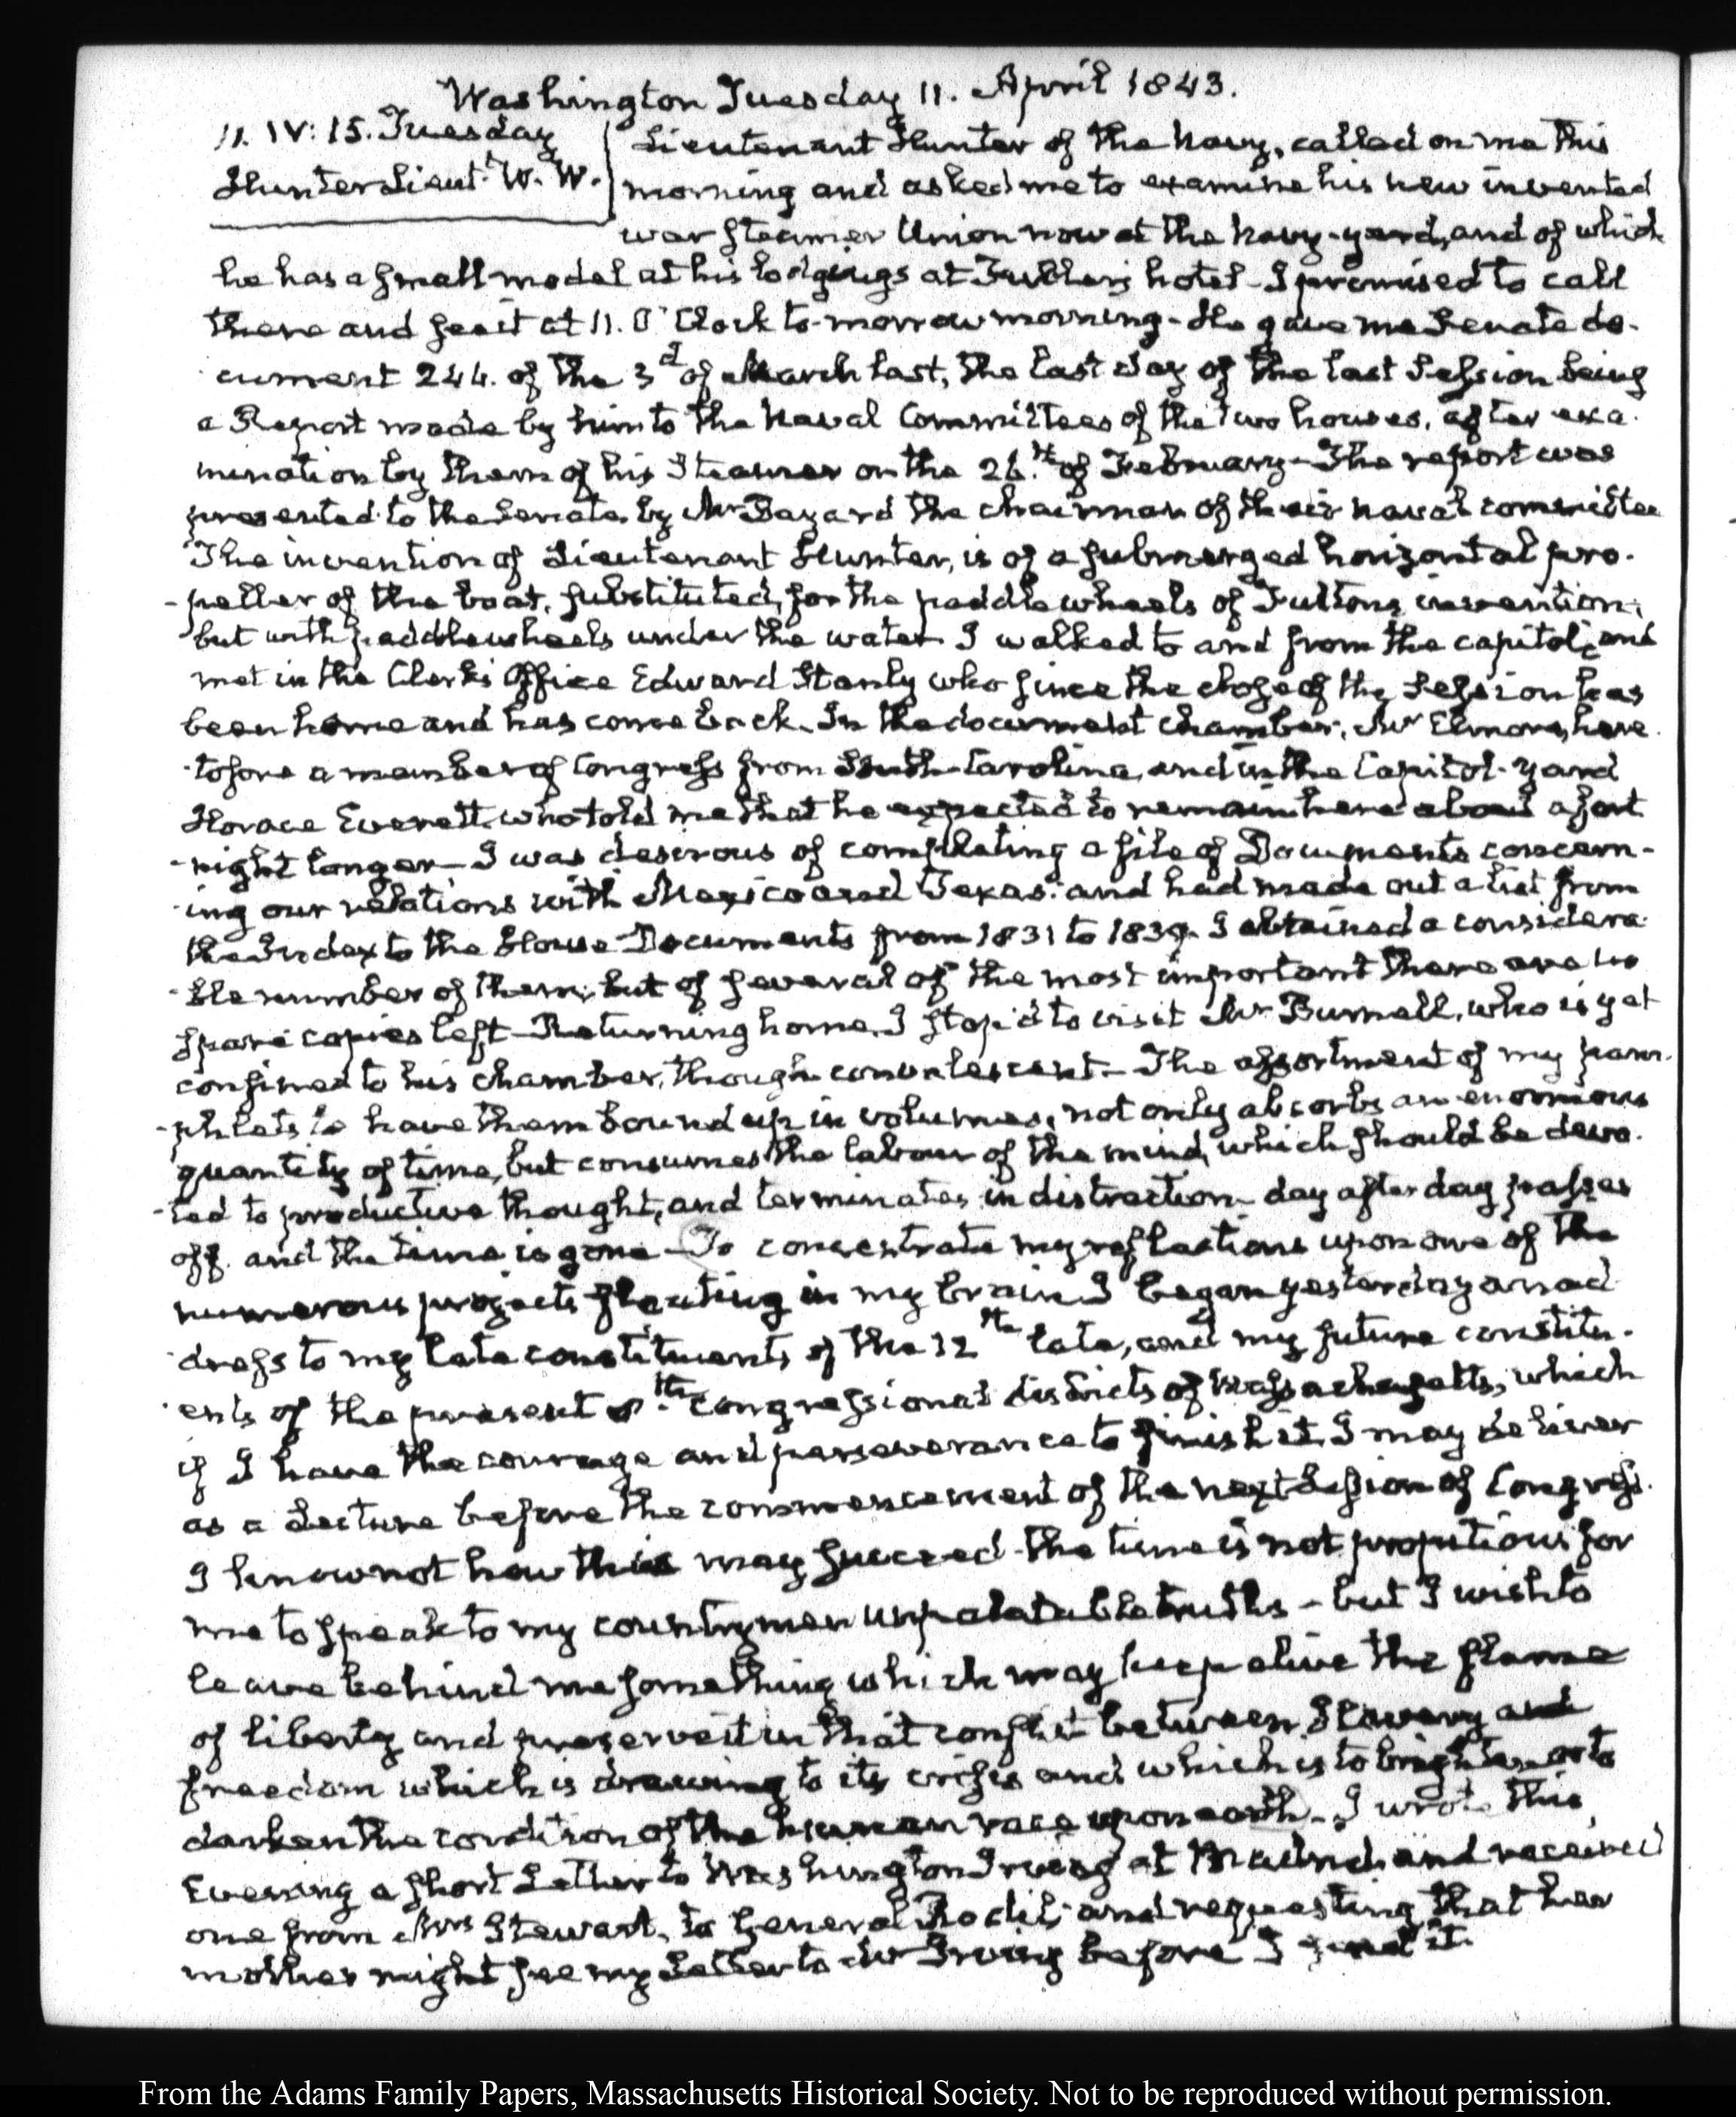 Washington Tuesday 11. April 1843.
11. IV: 15. Tuesday
Hunter Lieut.t W. W.
Lieutenant Hunter of the Navy, called on me this
morning and asked me to examine his new invented
war steamer Union now at the Navy-yard, and of which
he has a small model at his lodgings at Fuller's hotel - I promised to call
there and see it at 11. O'Clock to-morrow morning - He gave me Senate do-
cument 244. of the 3d of March last, the last day of the last Session being
a Report made by him to the Naval Committees of the two houses, after exa-
mination by them of his Steamer on the 26.th of February - The report was
presented to the Senate by Mr Bayard the chairman of their naval committee
The invention of Lieutenant Hunter, is of a submerged horizontal pro-
-peller of the boat, substituted, for the paddle wheels of Fulton's invention;
but with paddlewheels under the water. I walked to and from the capitol; and
met in the Clerk's Office Edward Stanly who since the close of the Session has
been home and has come back. In the document chamber, Mr Elmore, here-
-tofore a member of Congress from South-Carolina, and in the Capitol-yard
Horace Everett, who told me that he expected to remain here about a fort-
-night longer - I was desirous of completing a file of Documents concern-
-ing our relations with Mexico and Texas: and had made out a list from
the Index to the House Documents from 1831 to 1839. I obtained a considera-
-ble number of them; but of several of the most important there are no
spare copies left - Returning home, I stop'd to visit Mr Burnell, who is yet
confined to his chamber, though convalescent. - The assortment of my pam-
-phlets to have them bound up in volumes, not only absorbs an enormous
quantity of time, but consumes the labour of the mind, which should be devo-
-ted to productive thought, and terminates in distraction - day after day passes
off, and the time is gone - To concentrate my reflections upon one of the
numerous projects floating in my brain I began yesterday an ad-
-dress to my late constituents of the 12th late, and my future constitu-
-ents of the present 8.th Congressional districts of Massachusetts, which
if I have the courage and perseverance to finish it, I may deliver
as a Lecture before the commencement of the next Session of Congress.
I know not how this may succeed - the time is not propitious for
me to speak to my countrymen unpalatable truths - but I wish to
leave behind me something which may keep alive the flame
of liberty and preserve it in that conflict between Slavery and
freedom which is drawing to its crisis and which is to brighten or to
darken the condition of the human race upon earth - I wrote this
Evening a short Letter to Washington Irving at Madrid and received
one from Mrs Stewart, to General Rodil; and requesting that her
mother might see my Letter to Mr Irving before I send it.
From the Adams Family Papers, Massachusetts Historical Society. Not to be reproduced without permission.